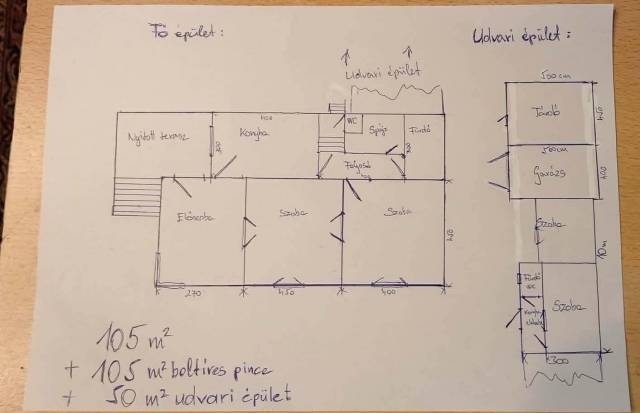 Fő épület:
Udvari épület:
Udvari épület
Nyitott terasz
Konyha
WC
Spájz
Fürdő
Folyosó
Előszoba
Szoba
Szoba
270
450
400
450
500 cm
Tároló
500 cm
Garázs
400
Szoba
10 m
Fürdő
WC
Konyha
Szoba
300
105 m²
+ 105 m² boltíves pince
+ 50 m² udvari épület